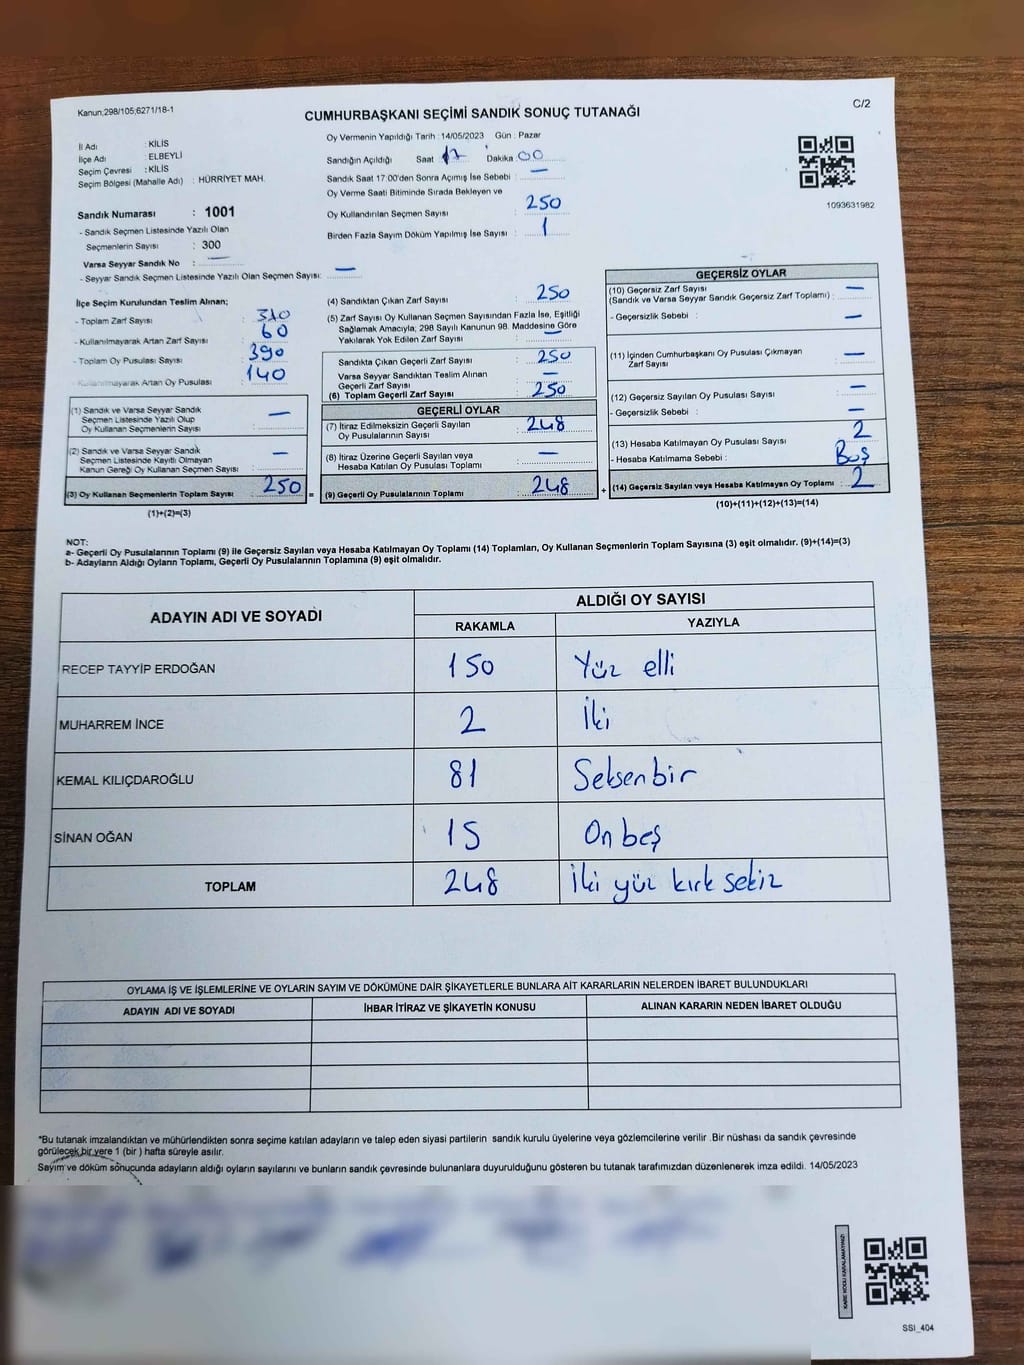 Kanun,298/105;6271/18-1
C/2
CUMHURBAŞKANI SEÇİMİ SANDIK SONUÇ TUTANAĞI
İl Adı : KİLİS
İlçe Adı : ELBEYLİ
Seçim Çevresi : KİLİS
Seçim Bölgesi (Mahalle Adı) : HÜRRİYET MAH.
Sandık Numarası : 1001
- Sandık Seçmen Listesinde Yazılı Olan
Seçmenlerin Sayısı : 300
Varsa Seyyar Sandık No : —
- Seyyar Sandık Seçmen Listesinde Yazılı Olan Seçmen Sayısı: —
Oy Vermenin Yapıldığı Tarih :14/05/2023 Gün : Pazar
Sandığın Açıldığı Saat 17 Dakika :00
Sandık Saat 17:00'den Sonra Açımış İse Sebebi : —
Oy Verme Saati Bitiminde Sırada Bekleyen ve
Oy Kullandırılan Seçmen Sayısı : 250
Birden Fazla Sayım Döküm Yapılmış İse Sayısı : 1
1093631982
İlçe Seçim Kurulundan Teslim Alınan;
- Toplam Zarf Sayısı : 310
- Kullanılmayarak Artan Zarf Sayısı : 60
- Toplam Oy Pusulası Sayısı : 390
- Kullanılmayarak Artan Oy Pusulası : 140
(1) Sandık ve Varsa Seyyar Sandık
Seçmen Listesinde Yazılı Olup
Oy Kullanan Seçmenlerin Sayısı : —
(2) Sandık ve Varsa Seyyar Sandık
Seçmen Listesinde Kayıtlı Olmayan
Kanun Gereği Oy Kullanan Seçmen Sayısı : —
(3) Oy Kullanan Seçmenlerin Toplam Sayısı : 250 =
(1)+(2)=(3)
(4) Sandıktan Çıkan Zarf Sayısı : 250
(5) Zarf Sayısı Oy Kullanan Seçmen Sayısından Fazla İse, Eşitliği
Sağlamak Amacıyla; 298 Sayılı Kanunun 98. Maddesine Göre
Yakılarak Yok Edilen Zarf Sayısı : —
Sandıkta Çıkan Geçerli Zarf Sayısı : 250
Varsa Seyyar Sandıktan Teslim Alınan
Geçerli Zarf Sayısı : —
(6) Toplam Geçerli Zarf Sayısı : 250
GEÇERLİ OYLAR
(7) İtiraz Edilmeksizin Geçerli Sayılan
Oy Pusulalarının Sayısı : 248
(8) İtiraz Üzerine Geçerli Sayılan veya
Hesaba Katılan Oy Pusulası Toplamı : —
(9) Geçerli Oy Pusulalarının Toplamı : 248 +
GEÇERSİZ OYLAR
(10) Geçersiz Zarf Sayısı
(Sandık ve Varsa Seyyar Sandık Geçersiz Zarf Toplamı) : —
- Geçersizlik Sebebi : —
(11) İçinden Cumhurbaşkanı Oy Pusulası Çıkmayan
Zarf Sayısı : —
(12) Geçersiz Sayılan Oy Pusulası Sayısı : —
- Geçersizlik Sebebi : —
(13) Hesaba Katılmayan Oy Pusulası Sayısı : 2
- Hesaba Katılmama Sebebi : Boş
(14) Geçersiz Sayılan veya Hesaba Katılmayan Oy Toplamı : 2
(10)+(11)+(12)+(13)=(14)
NOT:
a- Geçerli Oy Pusulalarının Toplamı (9) ile Geçersiz Sayılan veya Hesaba Katılmayan Oy Toplamı (14) Toplamları, Oy Kullanan Seçmenlerin Toplam Sayısına (3) eşit olmalıdır. (9)+(14)=(3)
b- Adayların Aldığı Oyların Toplamı, Geçerli Oy Pusulalarının Toplamına (9) eşit olmalıdır.
ADAYIN ADI VE SOYADI
ALDIĞI OY SAYISI
RAKAMLA YAZIYLA
RECEP TAYYİP ERDOĞAN 150 Yüz elli
MUHARREM İNCE 2 İki
KEMAL KILIÇDAROĞLU 81 Seksenbir
SİNAN OĞAN 15 On beş
TOPLAM 248 İki yüz kırk sekiz
OYLAMA İŞ VE İŞLEMLERİNE VE OYLARIN SAYIM VE DÖKÜMÜNE DAİR ŞİKAYETLERLE BUNLARA AİT KARARLARIN NELERDEN İBARET BULUNDUKLARI
ADAYIN ADI VE SOYADI İHBAR İTİRAZ VE ŞİKAYETİN KONUSU ALINAN KARARIN NEDEN İBARET OLDUĞU
*Bu tutanak imzalandıktan ve mühürlendikten sonra seçime katılan adayların ve talep eden siyasi partilerin sandık kurulu üyelerine veya gözlemcilerine verilir .Bir nüshası da sandık çevresinde
görülecek bir yere 1 (bir ) hafta süreyle asılır.
Sayım ve döküm sonucunda adayların aldığı oyların sayılarını ve bunların sandık çevresinde bulunanlara duyurulduğunu gösteren bu tutanak tarafımızdan düzenlenerek imza edildi. 14/05/2023
KARE KODU KARALAMAYINIZ!
SSI_404